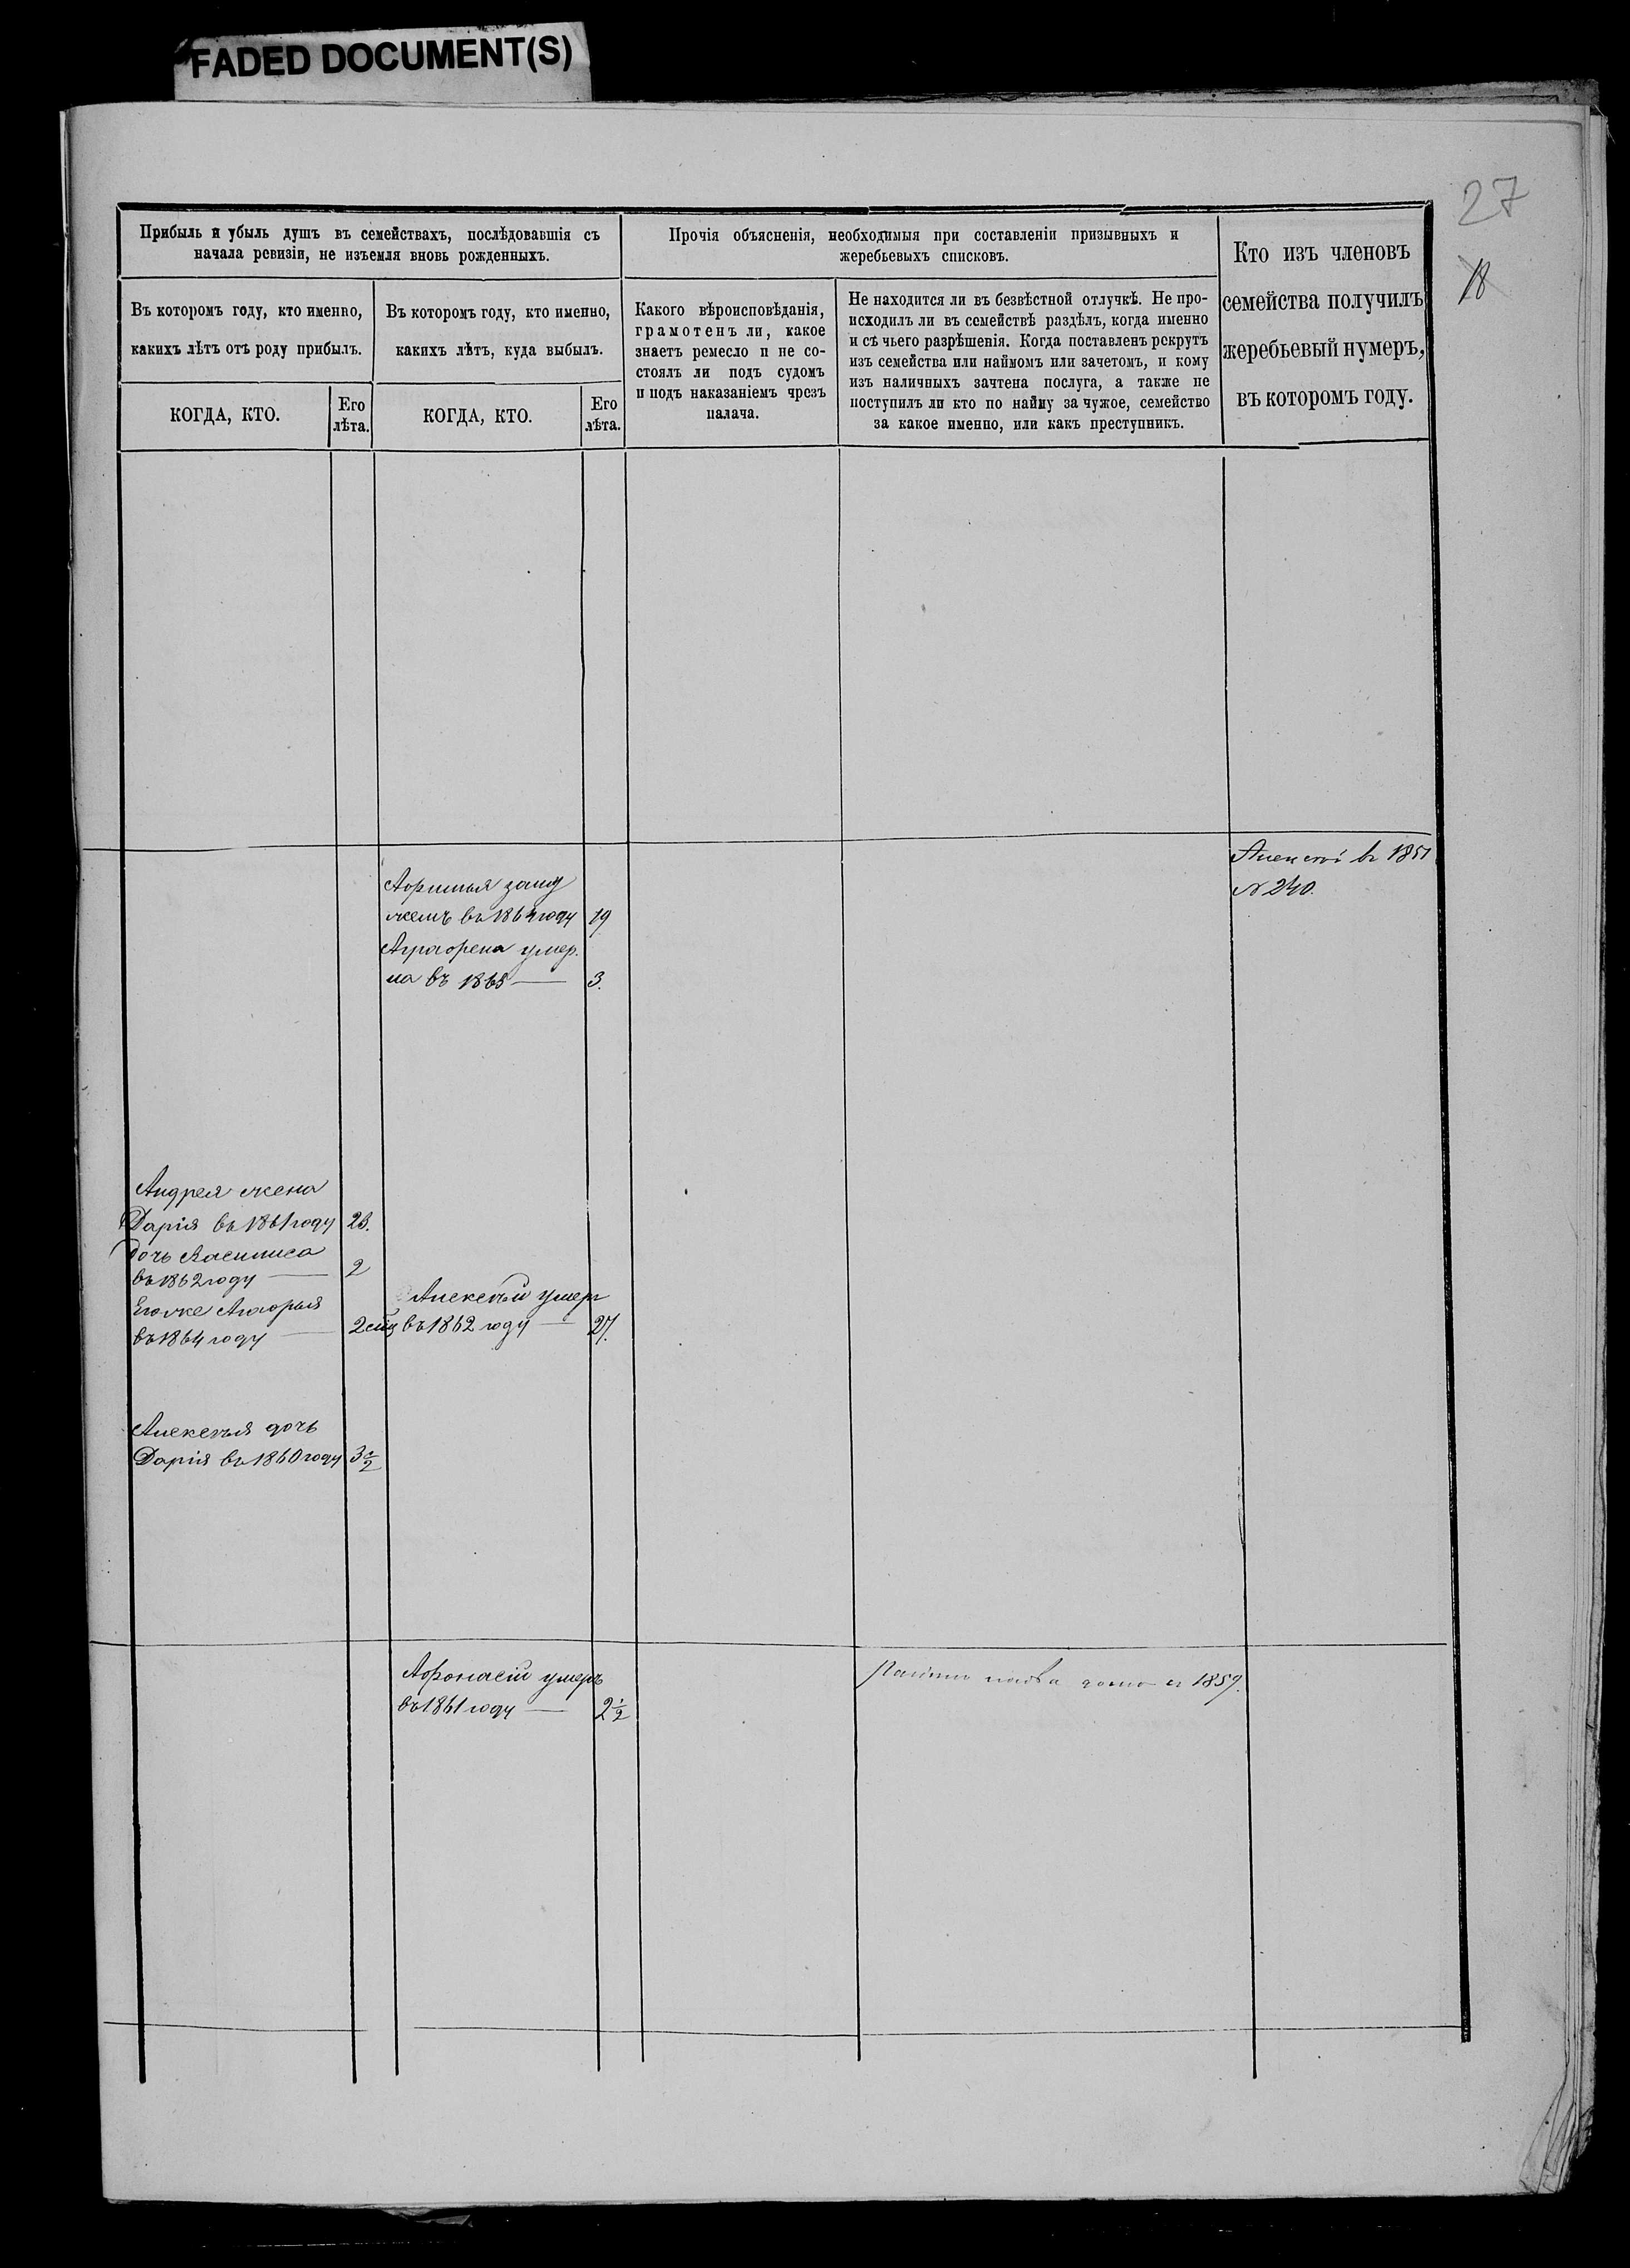 FADED DOCUMENT(S)
27
18
Прибыль и убыль душъ въ семействахъ, послѣдовавшія съ
начала ревизіи, не изъемля вновь рожденныхъ.
Въ которомъ году, кто именно,
какихъ лѣтъ отъ роду прибылъ.
КОГДА, КТО.
Его
лѣта.
Въ которомъ году, кто именно,
какихъ лѣтъ, куда выбылъ.
КОГДА, КТО.
Его
лѣта.
Прочія объясненія, необходимыя при составленіи призывныхъ и
жеребьевыхъ списковъ.
Какого вѣроисповѣданія,
грамотенъ ли, какое
знаетъ ремесло и не со-
стоялъ ли подъ судомъ
и подъ наказаніемъ чрезъ
палача.
Не находится ли въ безвѣстной отлучкѣ. Не про-
исходилъ ли въ семействѣ раздѣлъ, когда именно
и съ чьего разрѣшенія. Когда поставленъ рекрутъ
изъ семейства или наймомъ или зачетомъ, и кому
изъ наличныхъ зачтена послуга, а также не
поступилъ ли кто по найму за чужое, семейство
за какое именно, или какъ преступникъ.
Кто изъ членовъ
семейства получилъ
жеребьевый нумеръ,
въ которомъ году.
въ 1851
№ 240.
заму
жемъ въ 1864 году 19
умер.
ла въ 1865 — 3.
Андрея жена
Дарія въ 1861 году 23.
дочь Василиса
въ 1862 году — 2
Его же
въ 1864 году — 2
Алексѣй умеръ
въ 1862 году — 27.
Алексѣя дочь
Дарія въ 1860 году 3 1/2
Афонасій умеръ
въ 1861 году — 2 1/2
1859.